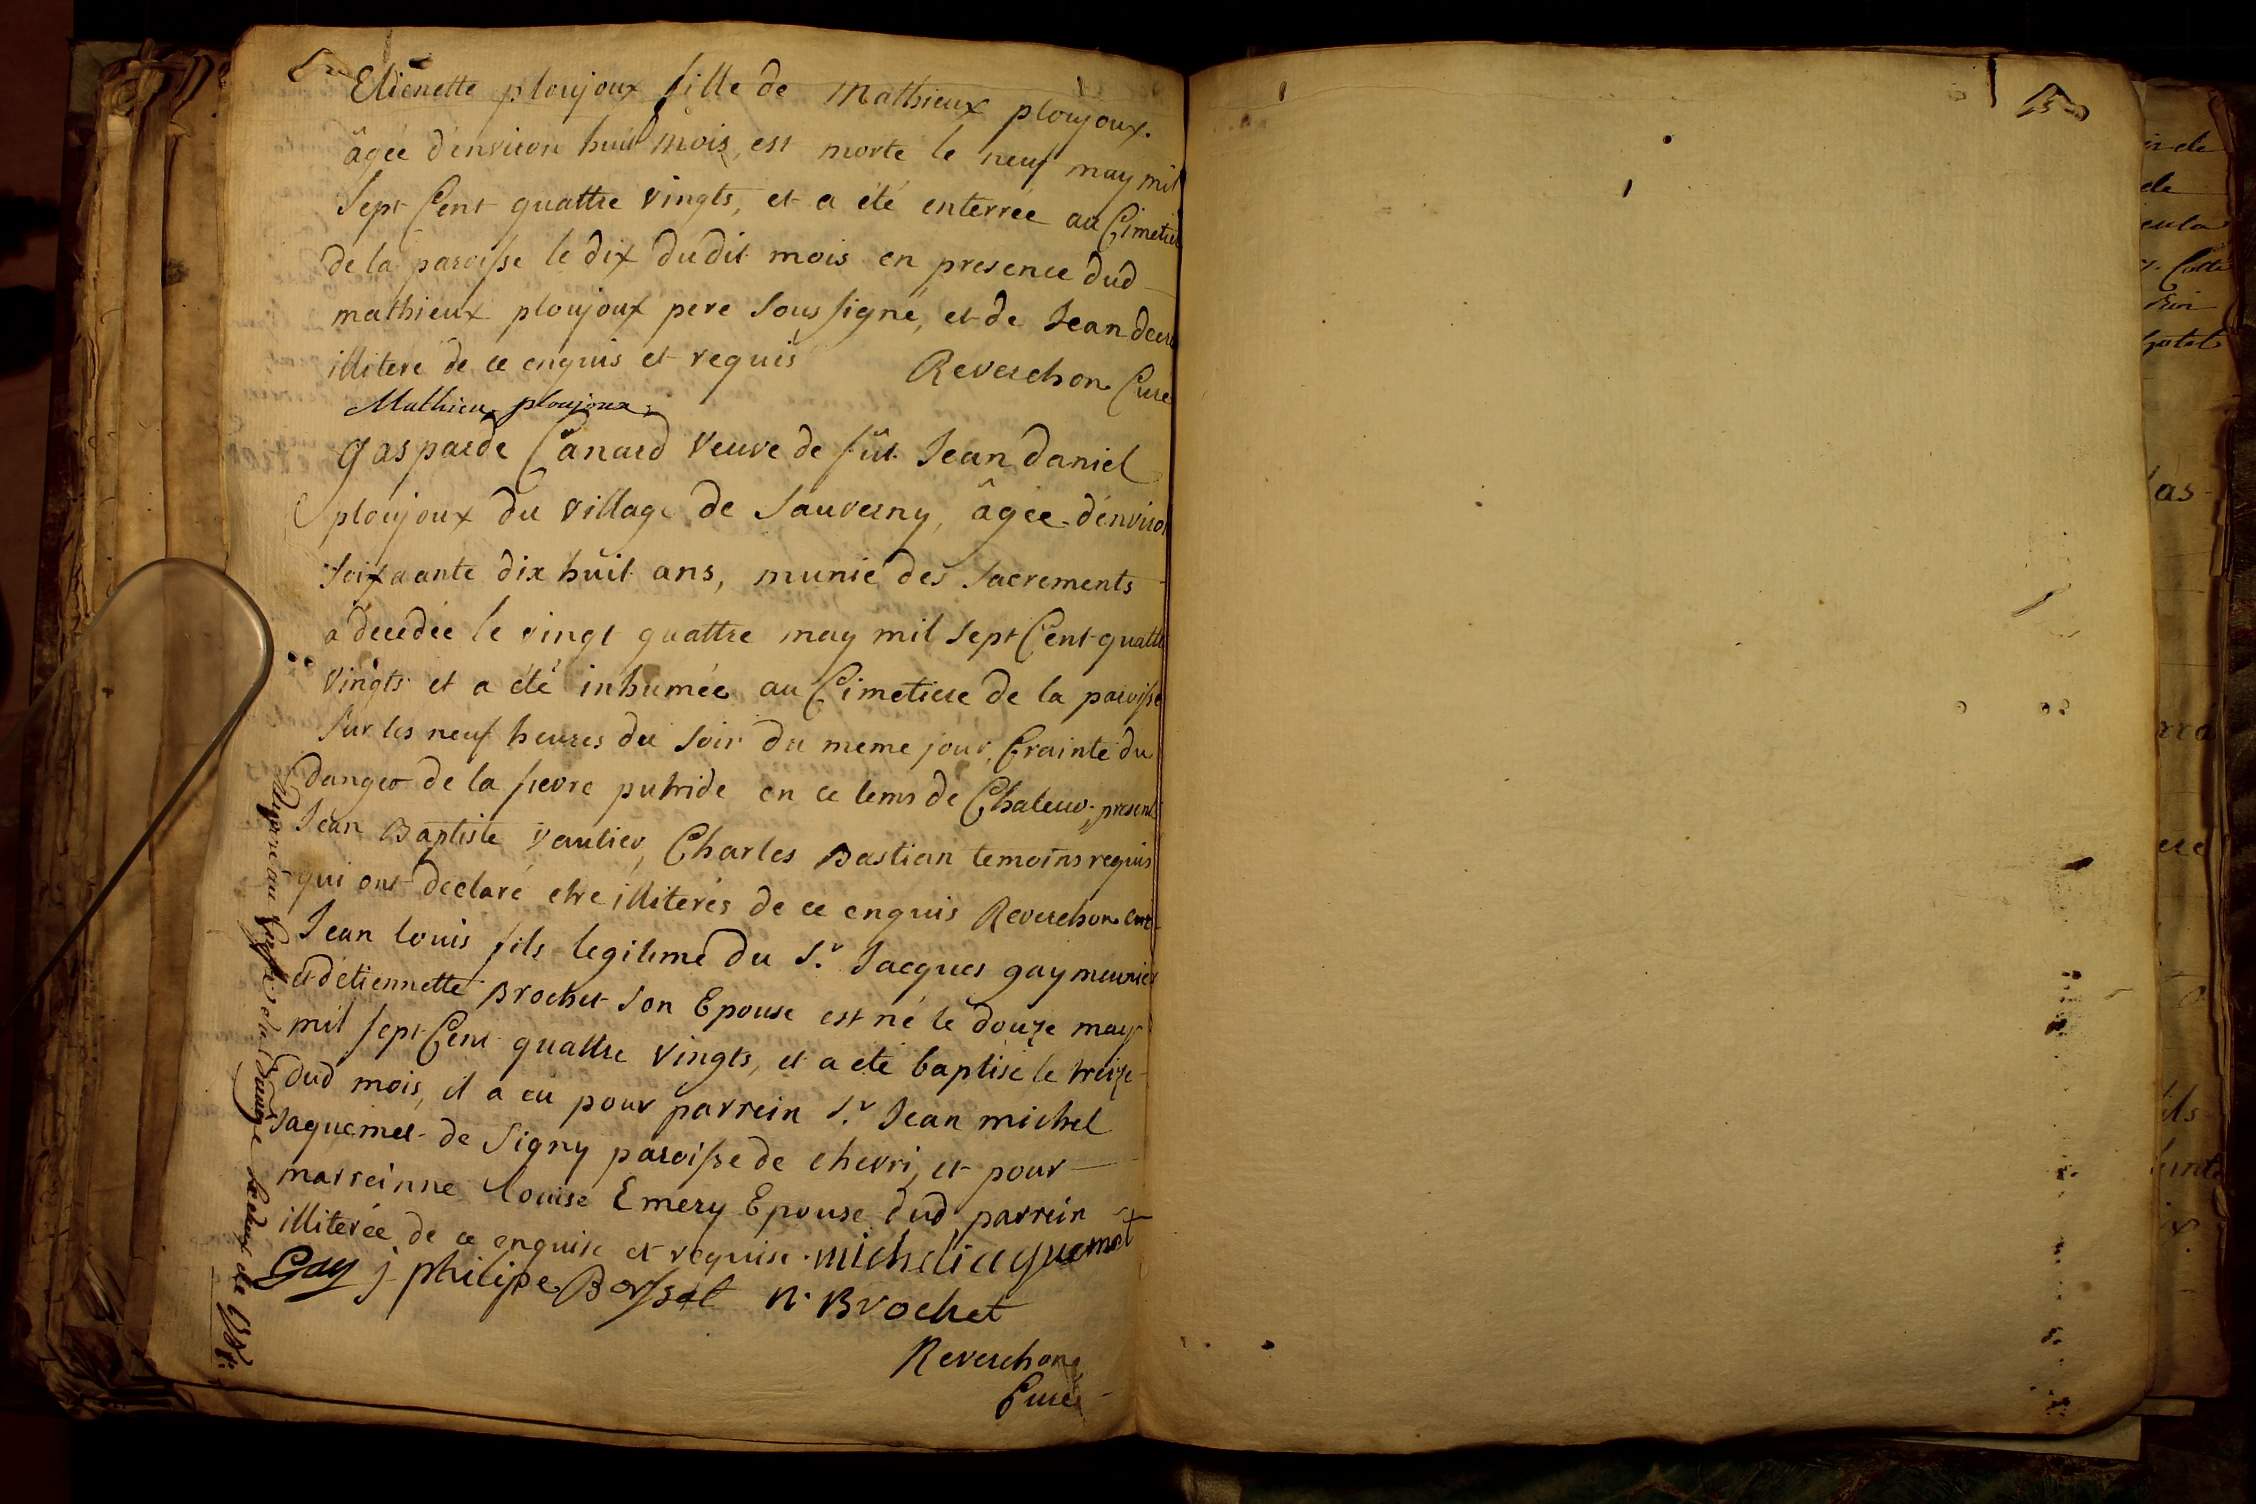 Etienette ploujoux fille de Mathieux ploujoux.
âgée d'environ huit mois, est morte le neuf may mil
sept Cent quattre vingts, et a été enterrée au Cimetie
de la paroisse le dix dudit mois en presence dud
mathieux ploujoux pere soussigné, et de Jean
illiteré de ce enquis et requis Reverchon Curé
Mathieu ploujoux
gasparde Canard veuve de fût Jean daniel
ploujoux du village de Sauverny, âgée d'environ
soixaante dix huit ans, munie des Sacrements
a decedée le vingt quattre may mil sept Cent quattre
vingts et a été inhumée au Cimetiere de la paroisse
sur les neuf heures du soir du meme jour, Crainte du
danger de la fievre putride en ce tems de Chaleur, present
Jean Baptiste vautier, Charles Bastian temoins requis
qui ont declaré etre illiterés de ce enquis Reverchon curé
Jean louis fils legitime du S.r Jacques gay meunier
et d'etiennette Brochet son Epouse est né le douze may
mil sept Cent quattre vingts, et a eté baptisé le treize
dud mois, il a eu pour parrein S.r Jean michel
Jaquemet de Signy paroisse de chevri, et pour
marreinne louise Emery Epouse dud parrein
illiterée de ce enquise et requise. michel iaquemet
Gay j philipe Borssat n. Brochet
Reverchon
Curé